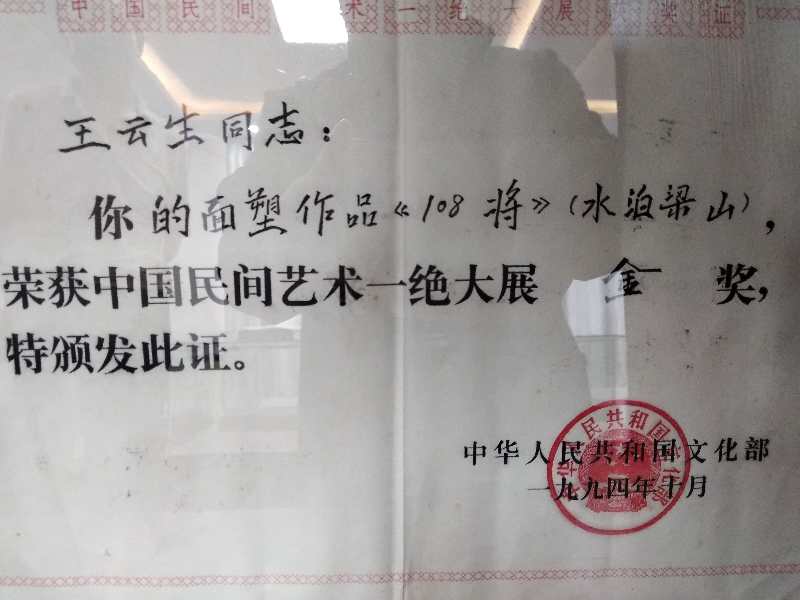 中国民间 术一绝大展 奖证
王云生同志：
你的面塑作品《108将》（水泊梁山），
荣获中国民间艺术一绝大展 金 奖，
特颁发此证。
中华人民共和国文化部
一九九四年十月
中华人民共和国文化部